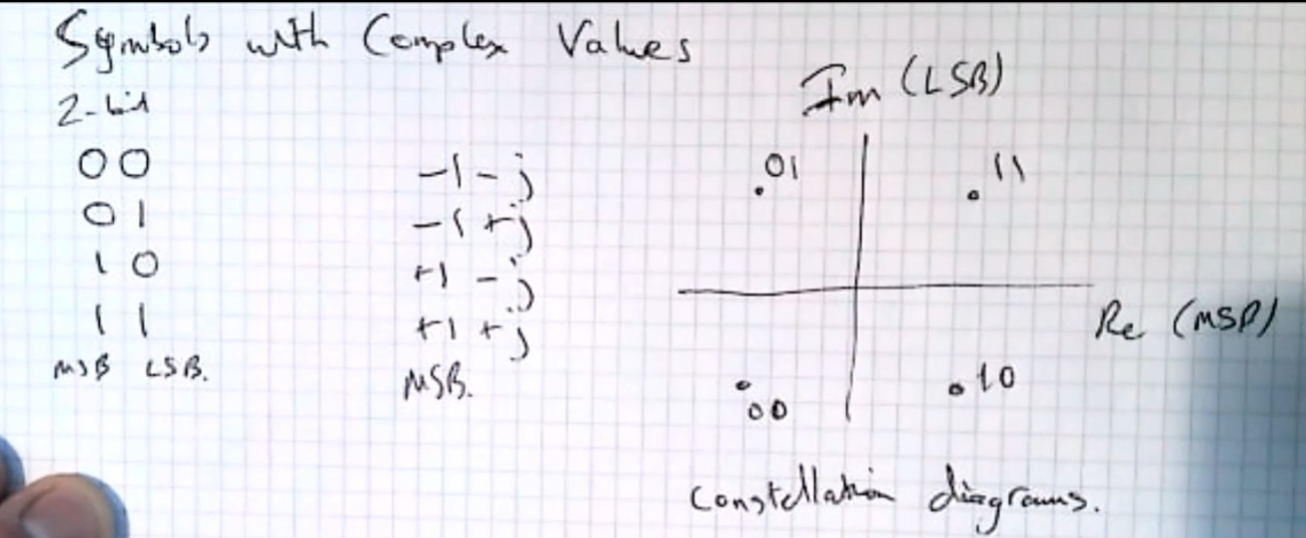 Symbols with Complex Values
2-bit
00 -1-j
01 -1+j
10 +1-j
11 +1+j
MSB LSB. MSB.
Im (LSB)
01 11
Re (MSB)
00 10
Constellation diagrams.